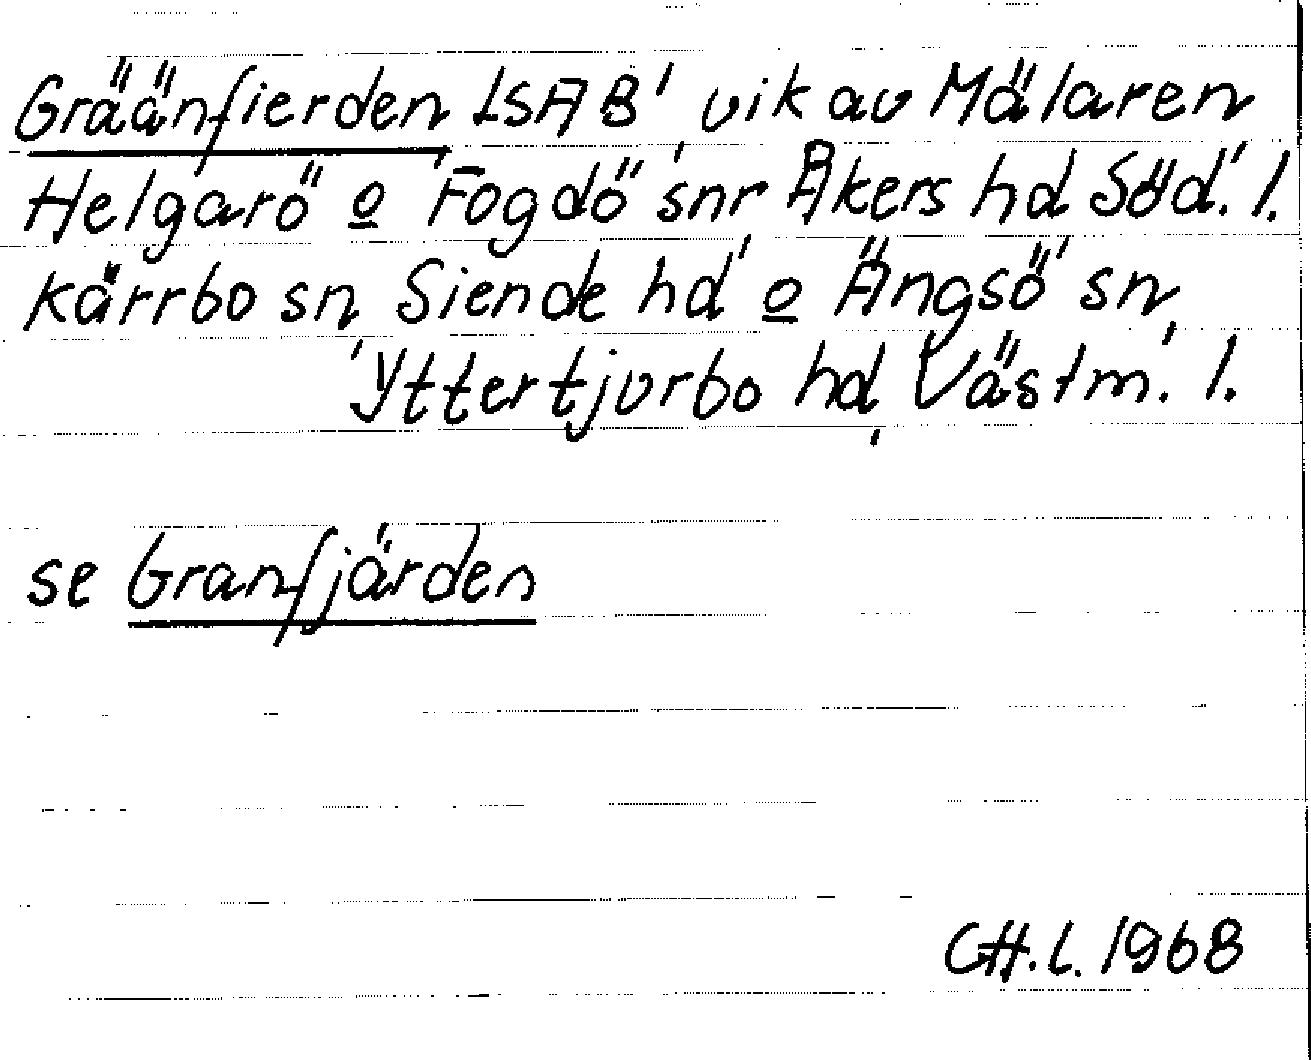 Gräänfierden LSÄB' vik av Mälaren
Helgarö o Fogdö snr Åkers hd Söd. l.
Kärrbo sn Siende hd o Ängsö sn
Yttertjurbo hd Västm. l.
se Granfjärden
CH.L. 1968